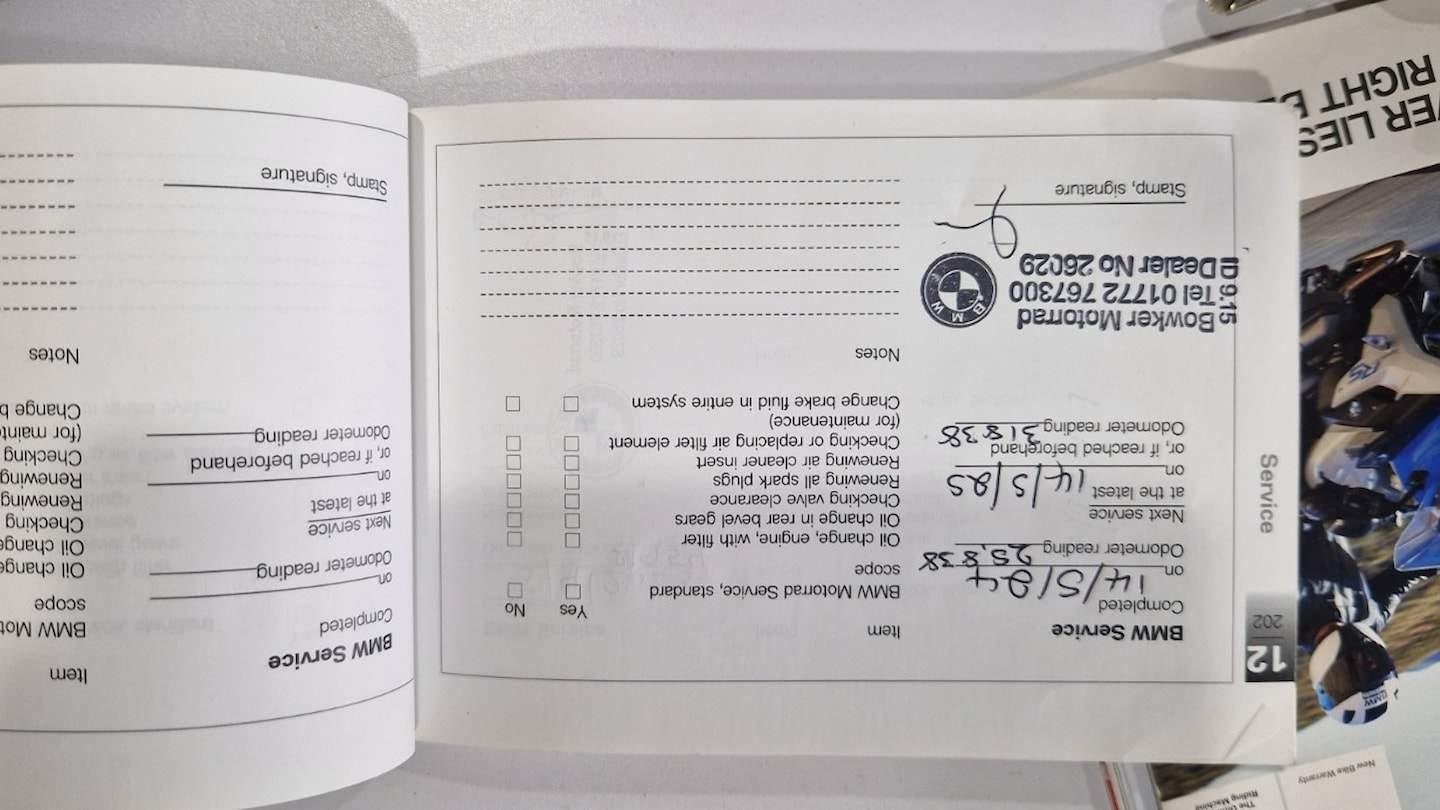 New Bike Warranty
Riding Machine
12
202
Service
BMW Service
Completed
on 14/5/24
Odometer reading 25,838
Next service
at the latest
on 14/5/25
or, if reached beforehand
Odometer reading 31838
Bowker Motorrad
Tel 01772 767300
Dealer No 26029
9.15
BMW
Stamp, signature
Item
Yes No
BMW Motorrad Service, standard
scope
Oil change, engine, with filter
Oil change in rear bevel gears
Checking valve clearance
Renewing all spark plugs
Renewing air cleaner insert
Checking or replacing air filter element
(for maintenance)
Change brake fluid in entire system
Notes
BMW Service
Completed
on
Odometer reading
Next service
at the latest
on
or, if reached beforehand
Odometer reading
Stamp, signature
Item
BMW Mot
scope
Oil change
Oil change
Checking
Renewing
Renewing
Checking
(for mainte
Change b
Notes
VER LIES
RIGHT BE
RS
BMW